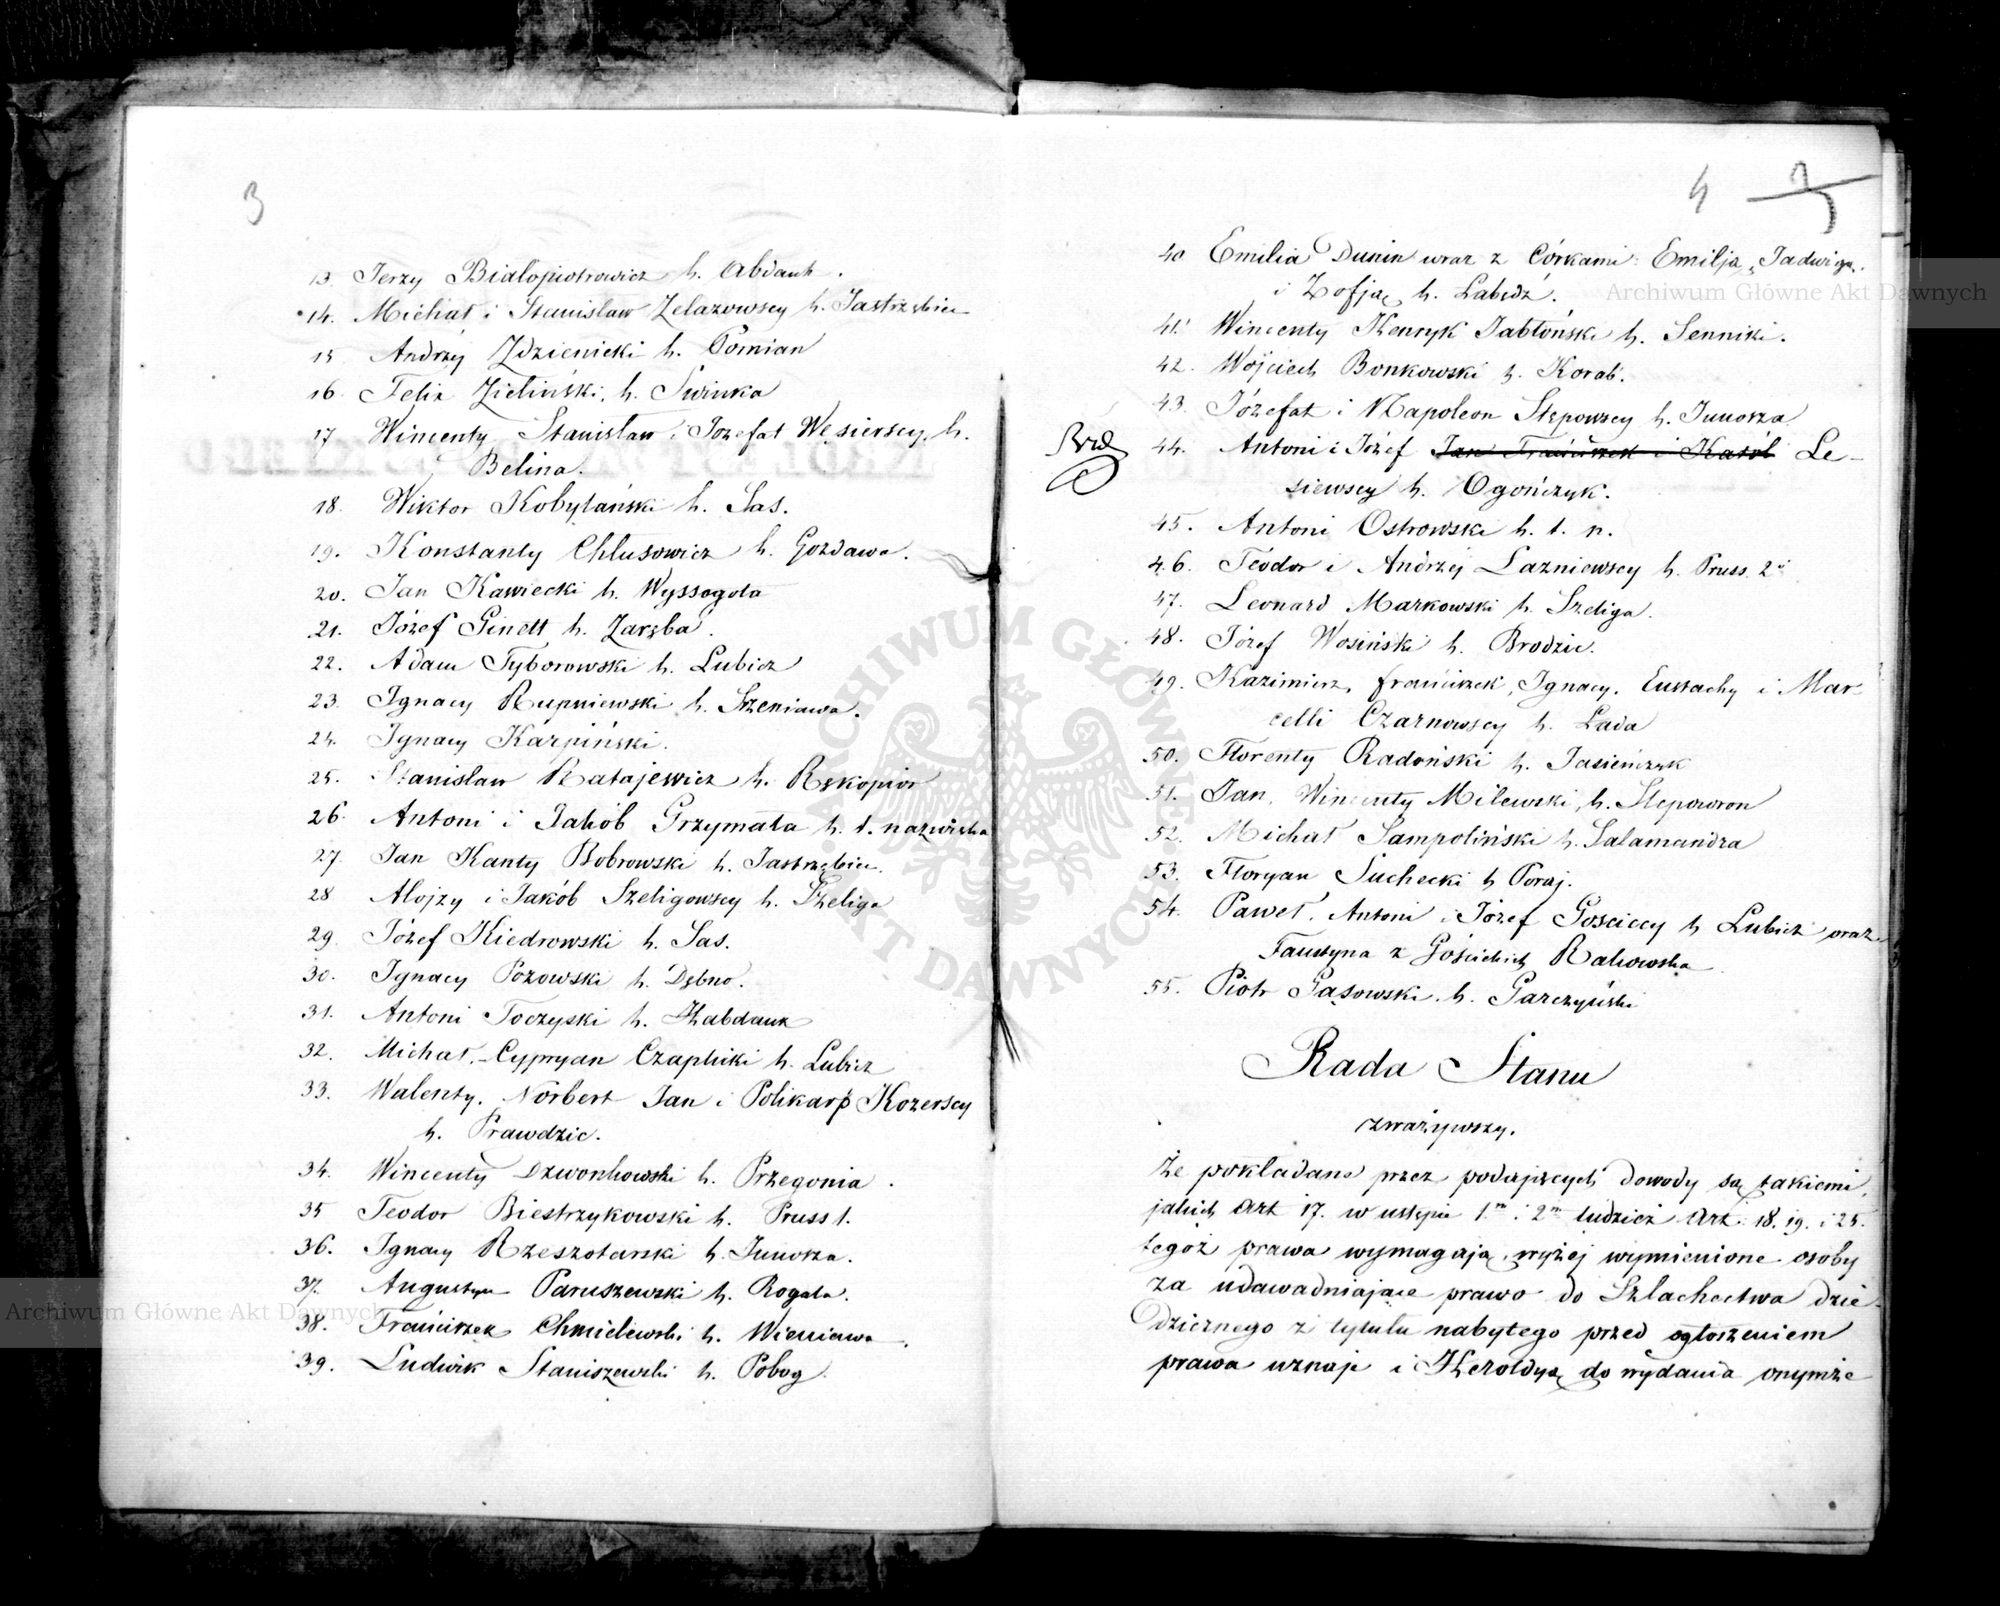 3
13. Jerzy Białopiotrowicz h. Abdank.
14. Michał i Stanisław Żelazowscy h. Jastrzębiec
15 Andrzy Zdzienicki h. Pomian
16. Felix Zieliński, h. Świnka
17 Wincenty, Stanisław i Józefat Węsierscy, h.
Belina.
18. Wiktor Kobylański h. Sas.
19. Konstanty Chlusowicz h. Gozdawa.
20. Jan Kawiecki h. Wyssogota
21. Józef Ginett h. Zaręba.
22. Adam Tyborowski h. Lubicz
23. Ignacy Rupniewski h. Szreniawa.
24. Ignacy Karpiński.
25. Stanisław Ratajewicz h. Rękopior
26. Antoni i Jakób Grzymała h. t. nazwiska
27. Jan Kanty Bobrowski h. Jastrzębiec.
28 Alojzy i Jakób Szeligowscy h. Szeliga
29. Józef Kiedrowski h. Sas.
30. Ignacy Pozowski h. Dębno.
31. Antoni Toczyski h. Habdank
32. Michał, Cypryan Czaplicki h. Lubicz
33. Walenty, Norbert Jan i Polikarp Kozerscy
h. Prawdzic.
34. Wincenty Dzwonkowski h. Przegonia.
35 Teodor Biestrzykowski h. Pruss 1.
36. Ignacy Rzeszotarski h. Junosza.
37. Augustyn Paruszewski h. Rogala.
38. Franciszek Chmielewski h. Wieniawa.
39. Ludwik Staniszewski h. Pobog.
4
40 Emilia Dunin wraz z Córkami: Emilją, Jadwigą,
i Zofją h. Łabędź.
41. Wincenty Henryk Jabłoński h. Senniki.
42. Wojciech Bonkowski h. Korab.
43. Józefat i Napoleon Stępowscy h. Junosza
44. Antoni i Józef Jan Franciszek i Karól Le-
siewscy h. Ogończyk.
45. Antoni Ostrowski h. t. n.
46. Teodor i Andrzéj Łazniewscy h. Pruss 2º
47. Leonard Markowski h. Szeliga.
48. Józef Wosiński h. Brodzic.
49. Kazimierz, Franciszek, Ignacy, Eustachy i Mar
celli Czarnowscy h. Łada
50. Florenty Radoński h. Jasieńczyk
51. Jan, Wincenty Milewski, h. Slepowron
52. Michał Sampoliński h. Salamandra
53. Floryan Suchecki h Poraj.
54. Paweł, Antoni i Józef Gosciccy h Lubicz oraz
Faustyna z Gościckich Rakowska
55. Piotr Gąsowski h. Garczyński
Rada Stanu
zważywszy.
Że pokładane przez podających dowody są takiemi,
jakich Art 17. w ustępie 1.m i 2m tudzież Art. 18. 19. i 25.
tegoż prawa wymagają, wyżej wymienione osoby
za udowadniające prawo do Szlachectwa dzie-
dzicznego z tytułu nabytego przed ogłoszeniem
prawa uznaje i Heroldyą do wydania onymże
ARCHIWUM GŁÓWNE AKT DAWNYCH
Archiwum Główne Akt Dawnych
Archiwum Główne Akt Dawnych